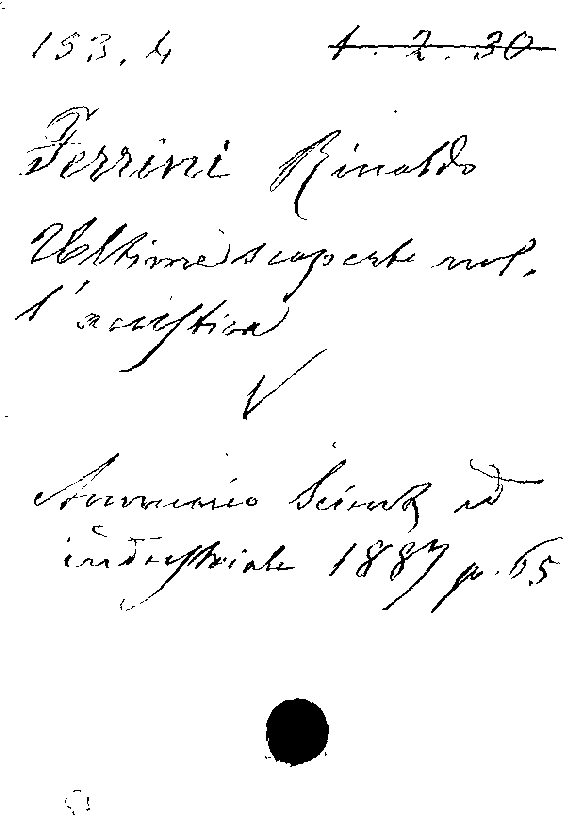 153.4 1.2.30
Ferrini Rinaldo
Ultime scoperte nel-
l'acustica
V
Annuario Scient. ed
industriale 1887 p. 65